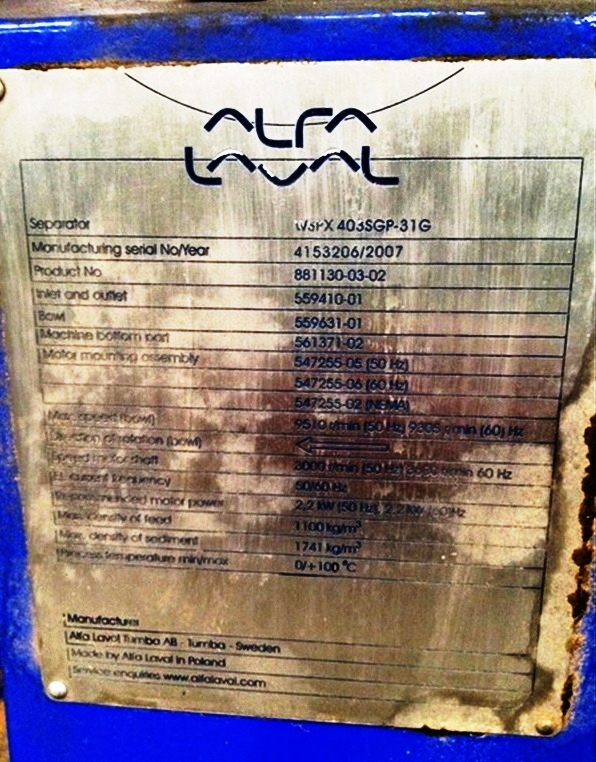 ALFA
LAVAL
Separator WSPX 403SGP-31G
Manufacturing serial No/Year 4153206/2007
Product No 881130-03-02
Inlet and outlet 559410-01
Bowl 559631-01
Machine bottom part 561371-02
Motor mounting assembly 547255-05 (50 Hz)
547255-06 (60 Hz)
547255-02 (NEMA)
Max. speed (bowl) 9510 r/min (50 Hz) 9305 r/min (60) Hz
Direction of rotation (bowl)
Speed motor shaft 3000 r/min (50 Hz) 3600 r/min 60 Hz
El. current frequency 50/60 Hz
Recommended motor power 2,2 kW (50 Hz), 2,2 kW (60)Hz
Max. density of feed 1100 kg/m³
Max. density of sediment 1741 kg/m³
Process temperature min/max 0/+100 °C
Manufacturer
Alfa Laval Tumba AB - Tumba - Sweden
Made by Alfa Laval in Poland
Service enquiries www.alfalaval.com